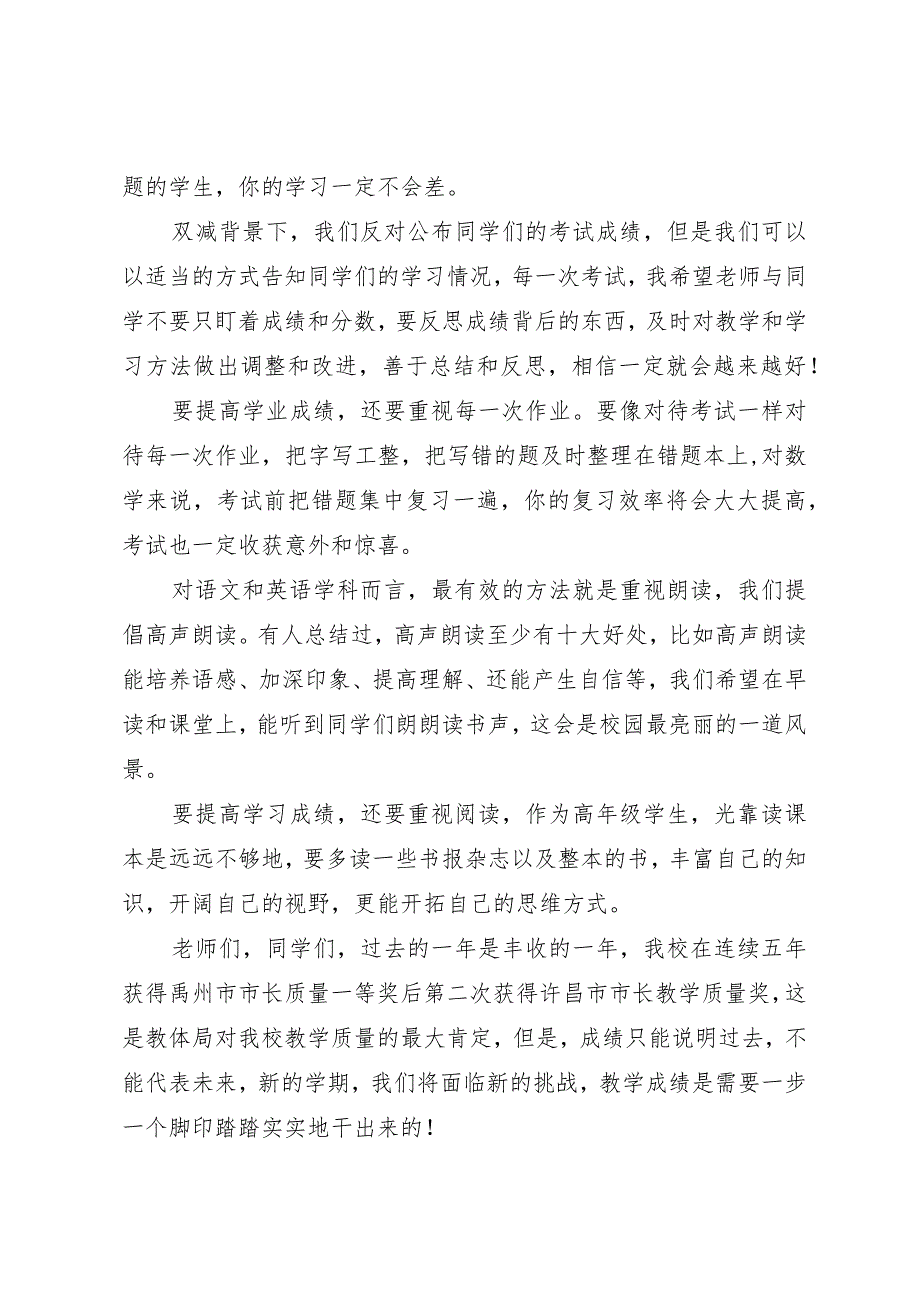 题的学生，你的学习一定不会差。
双减背景下，我们反对公布同学们的考试成绩，但是我们可以
以适当的方式告知同学们的学习情况，每一次考试，我希望老师与同
学不要只盯着成绩和分数，要反思成绩背后的东西，及时对教学和学
习方法做出调整和改进，善于总结和反思，相信一定就会越来越好！
要提高学业成绩，还要重视每一次作业。要像对待考试一样对
待每一次作业，把字写工整，把写错的题及时整理在错题本上,对数
学来说，考试前把错题集中复习一遍，你的复习效率将会大大提高，
考试也一定收获意外和惊喜。
对语文和英语学科而言，最有效的方法就是重视朗读，我们提
倡高声朗读。有人总结过，高声朗读至少有十大好处，比如高声朗读
能培养语感、加深印象、提高理解、还能产生自信等，我们希望在早
读和课堂上，能听到同学们朗朗读书声，这会是校园最亮丽的一道风
景。
要提高学习成绩，还要重视阅读，作为高年级学生，光靠读课
本是远远不够地，要多读一些书报杂志以及整本的书，丰富自己的知
识，开阔自己的视野，更能开拓自己的思维方式。
老师们，同学们，过去的一年是丰收的一年，我校在连续五年
获得禹州市市长质量一等奖后第二次获得许昌市市长教学质量奖，这
是教体局对我校教学质量的最大肯定，但是，成绩只能说明过去，不
能代表未来，新的学期，我们将面临新的挑战，教学成绩是需要一步
一个脚印踏踏实实地干出来的！